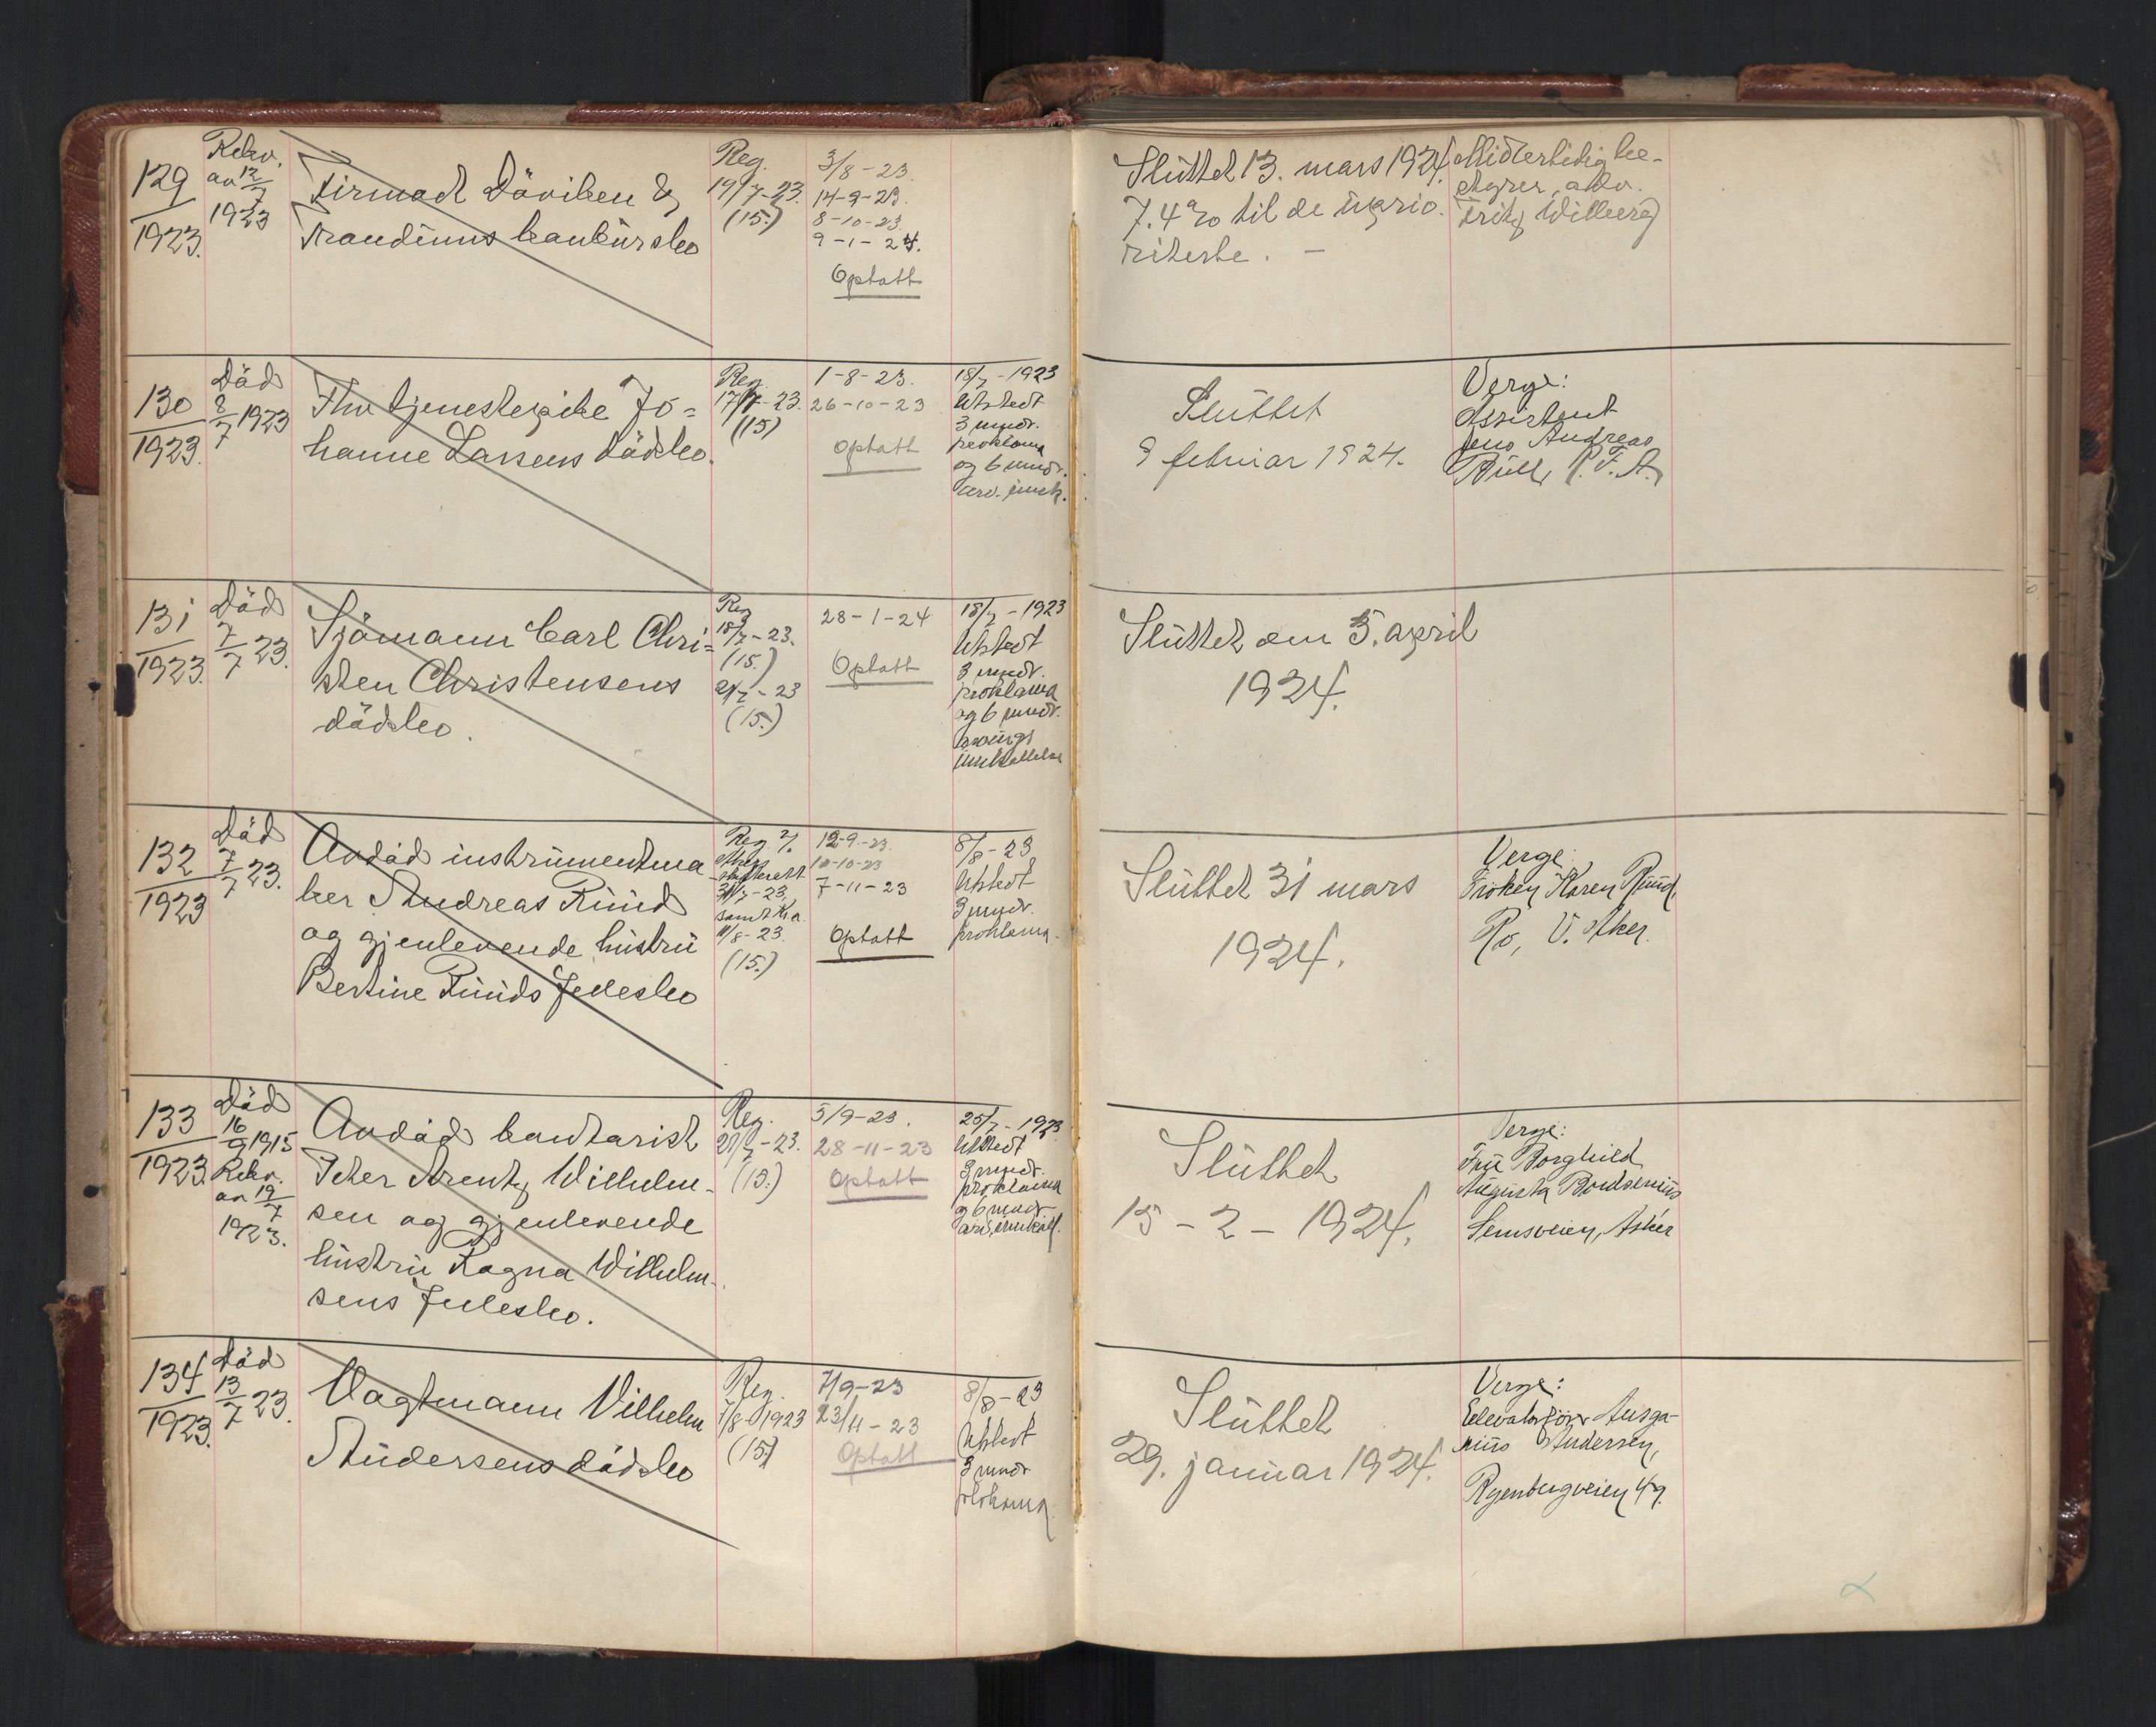 129
1923.
Rekv.
av 12/7
1923
Firmaet Döviken &
Trandums konkursbo
Reg.
19/7-23.
(15.)
3/8-23.
14-9-23.
8-10-23.
9-1-24.
Optatt
Sluttet 13. mars 1924.
7.4% til de uprio-
riterte. -
Midlertidig be-
styrer, adv.
Fritz Willberg
130
1923.
Död
8/7 1923
Frk. tjenestepike Jo=
hanne Larsens dödsbo.
Reg.
17/7-23.
(15)
1-8-23.
26-10-23
Optatt
18/7-1923
Utstedt
3 mndr.
proklama
og 6 mndr.
arv. innk.
Sluttet
9 februar 1924.
Verge:
Assistent
Jens Andreas
Bull, P.F.A.
131
1923.
Död
7/7 23.
Sjömann Carl Chri=
sten Christensens
dödsbo.
Reg
18/7-23.
(15.)
21/7-23
(15.)
28-1-24
Optatt
18/7-1923
Utstedt
3 mndr.
proklama
og 6 mndr.
arvings
innkallelse
Sluttet den 5. april
1924.
132
1923
Död
7/7 23.
Avdöd instrumentma-
ker Andreas Ruud
og gjenlevende hustru
Bertine Ruuds fellesbo
Reg v/
Akers
skifterett
31/7-23,
samt Kr.a.
11/8-23.
(15.)
12-9-23.
10-10-23
7-11-23
Optatt
8/8-23
Utstedt
3 mndr.
proklama.
Sluttet 31 mars
1924.
Verge:
Fröken Karen Ruud,
Ro, V. Aker.
133
1923.
Död
16/9 1915
Rekv.
av 19/7
1923.
Avdöd kontorist
Peter Arentz Wilhelm-
sen og gjenlevende
hustru Ragna Wilhelm-
sens fellesbo.
Reg.
21/7-23.
(15.)
5/9-23.
28-11-23
Optatt
25/7-1923
Utstedt
3 mndr.
proklama
og 6 mndr
arv. innkall.
Sluttet
15-2-1924.
Verge:
Fru Borghild
Augusta
Semsveien, Asker
134
1923.
Död
13/7 23.
Vagtmann Vilhelm
Andersens dödsbo
Reg.
7/8-1923
(15)
7/9-23
23/11-23
Optatt
8/8-23
Utstedt
3 mndr
proklama.
Sluttet
29. januar 1924.
Verge:
Elevatorförer
Andersen,
Ryenbergveien 49.